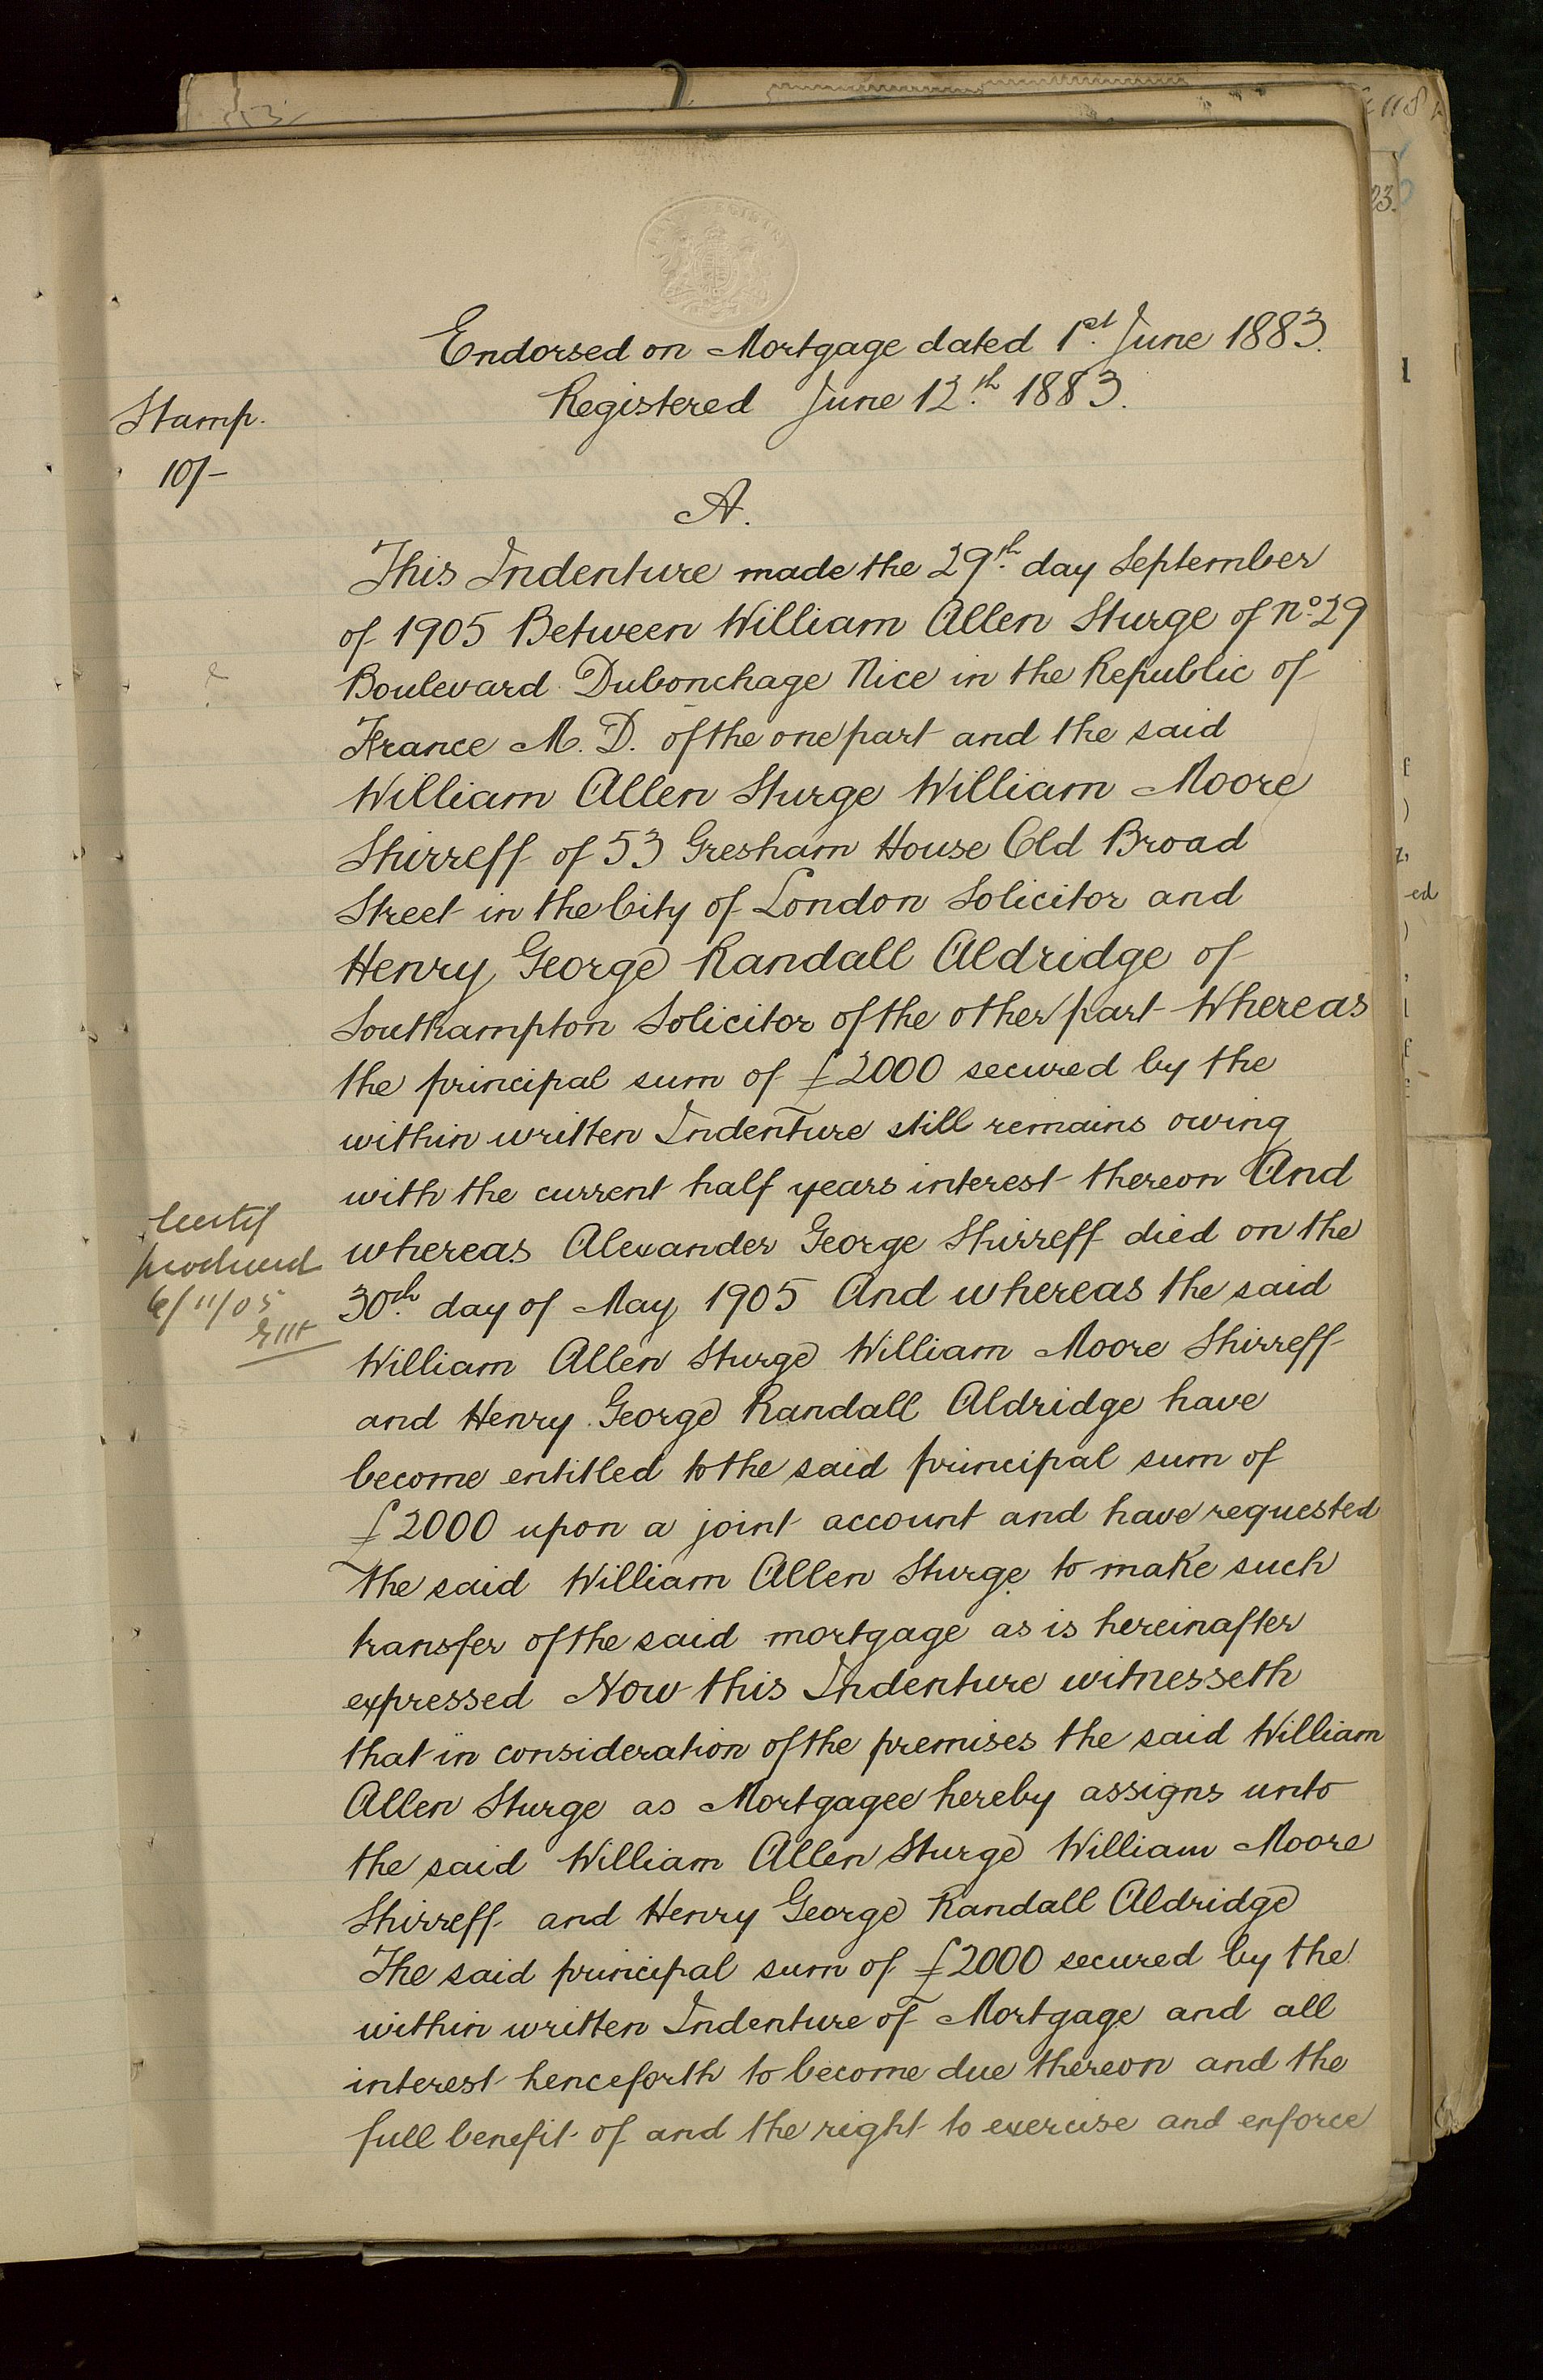 Endorsed on Mortgage dated 1st. June 1883.
Registered June 12.th 1883.
Stamp.
10/-
A.
This Indenture made the 29.th day September
of 1905 Between William Allen Sturge of No. 29
Boulevard Dubonchage Nice in the Republic of
France M. D. of the one part and the said
William Allen Sturge William Moore
Shirreff of 53 Gresham House Old Broad
Street in the City of London Solicitor and
Henry George Randall Aldridge of
Southampton Solicitor of the other part Whereas
the principal sum of £2000 secured by the
within written Indenture still remains owing
with the current half years interest thereon And
whereas Alexander George Shirreff died on the
30th. day of May 1905 And whereas the said
William Allen Sturge William Moore Shirreff
and Henry George Randall Aldridge have
become entitled to the said principal sum of
£2000 upon a joint account and have requested
the said William Allen Sturge to make such
transfer of the said mortgage as is hereinafter
expressed Now this Indenture witnesseth
that in consideration of the premises the said William
Allen Sturge as Mortgagee hereby assigns unto
the said William Allen Sturge William Moore
Shirreff and Henry George Randall Aldridge
The said principal sum of £2000 secured by the
within written Indenture of Mortgage and all
interest henceforth to become due thereon and the
full benefit of and the right to exercise and enforce
Certif
produced
6/11/05